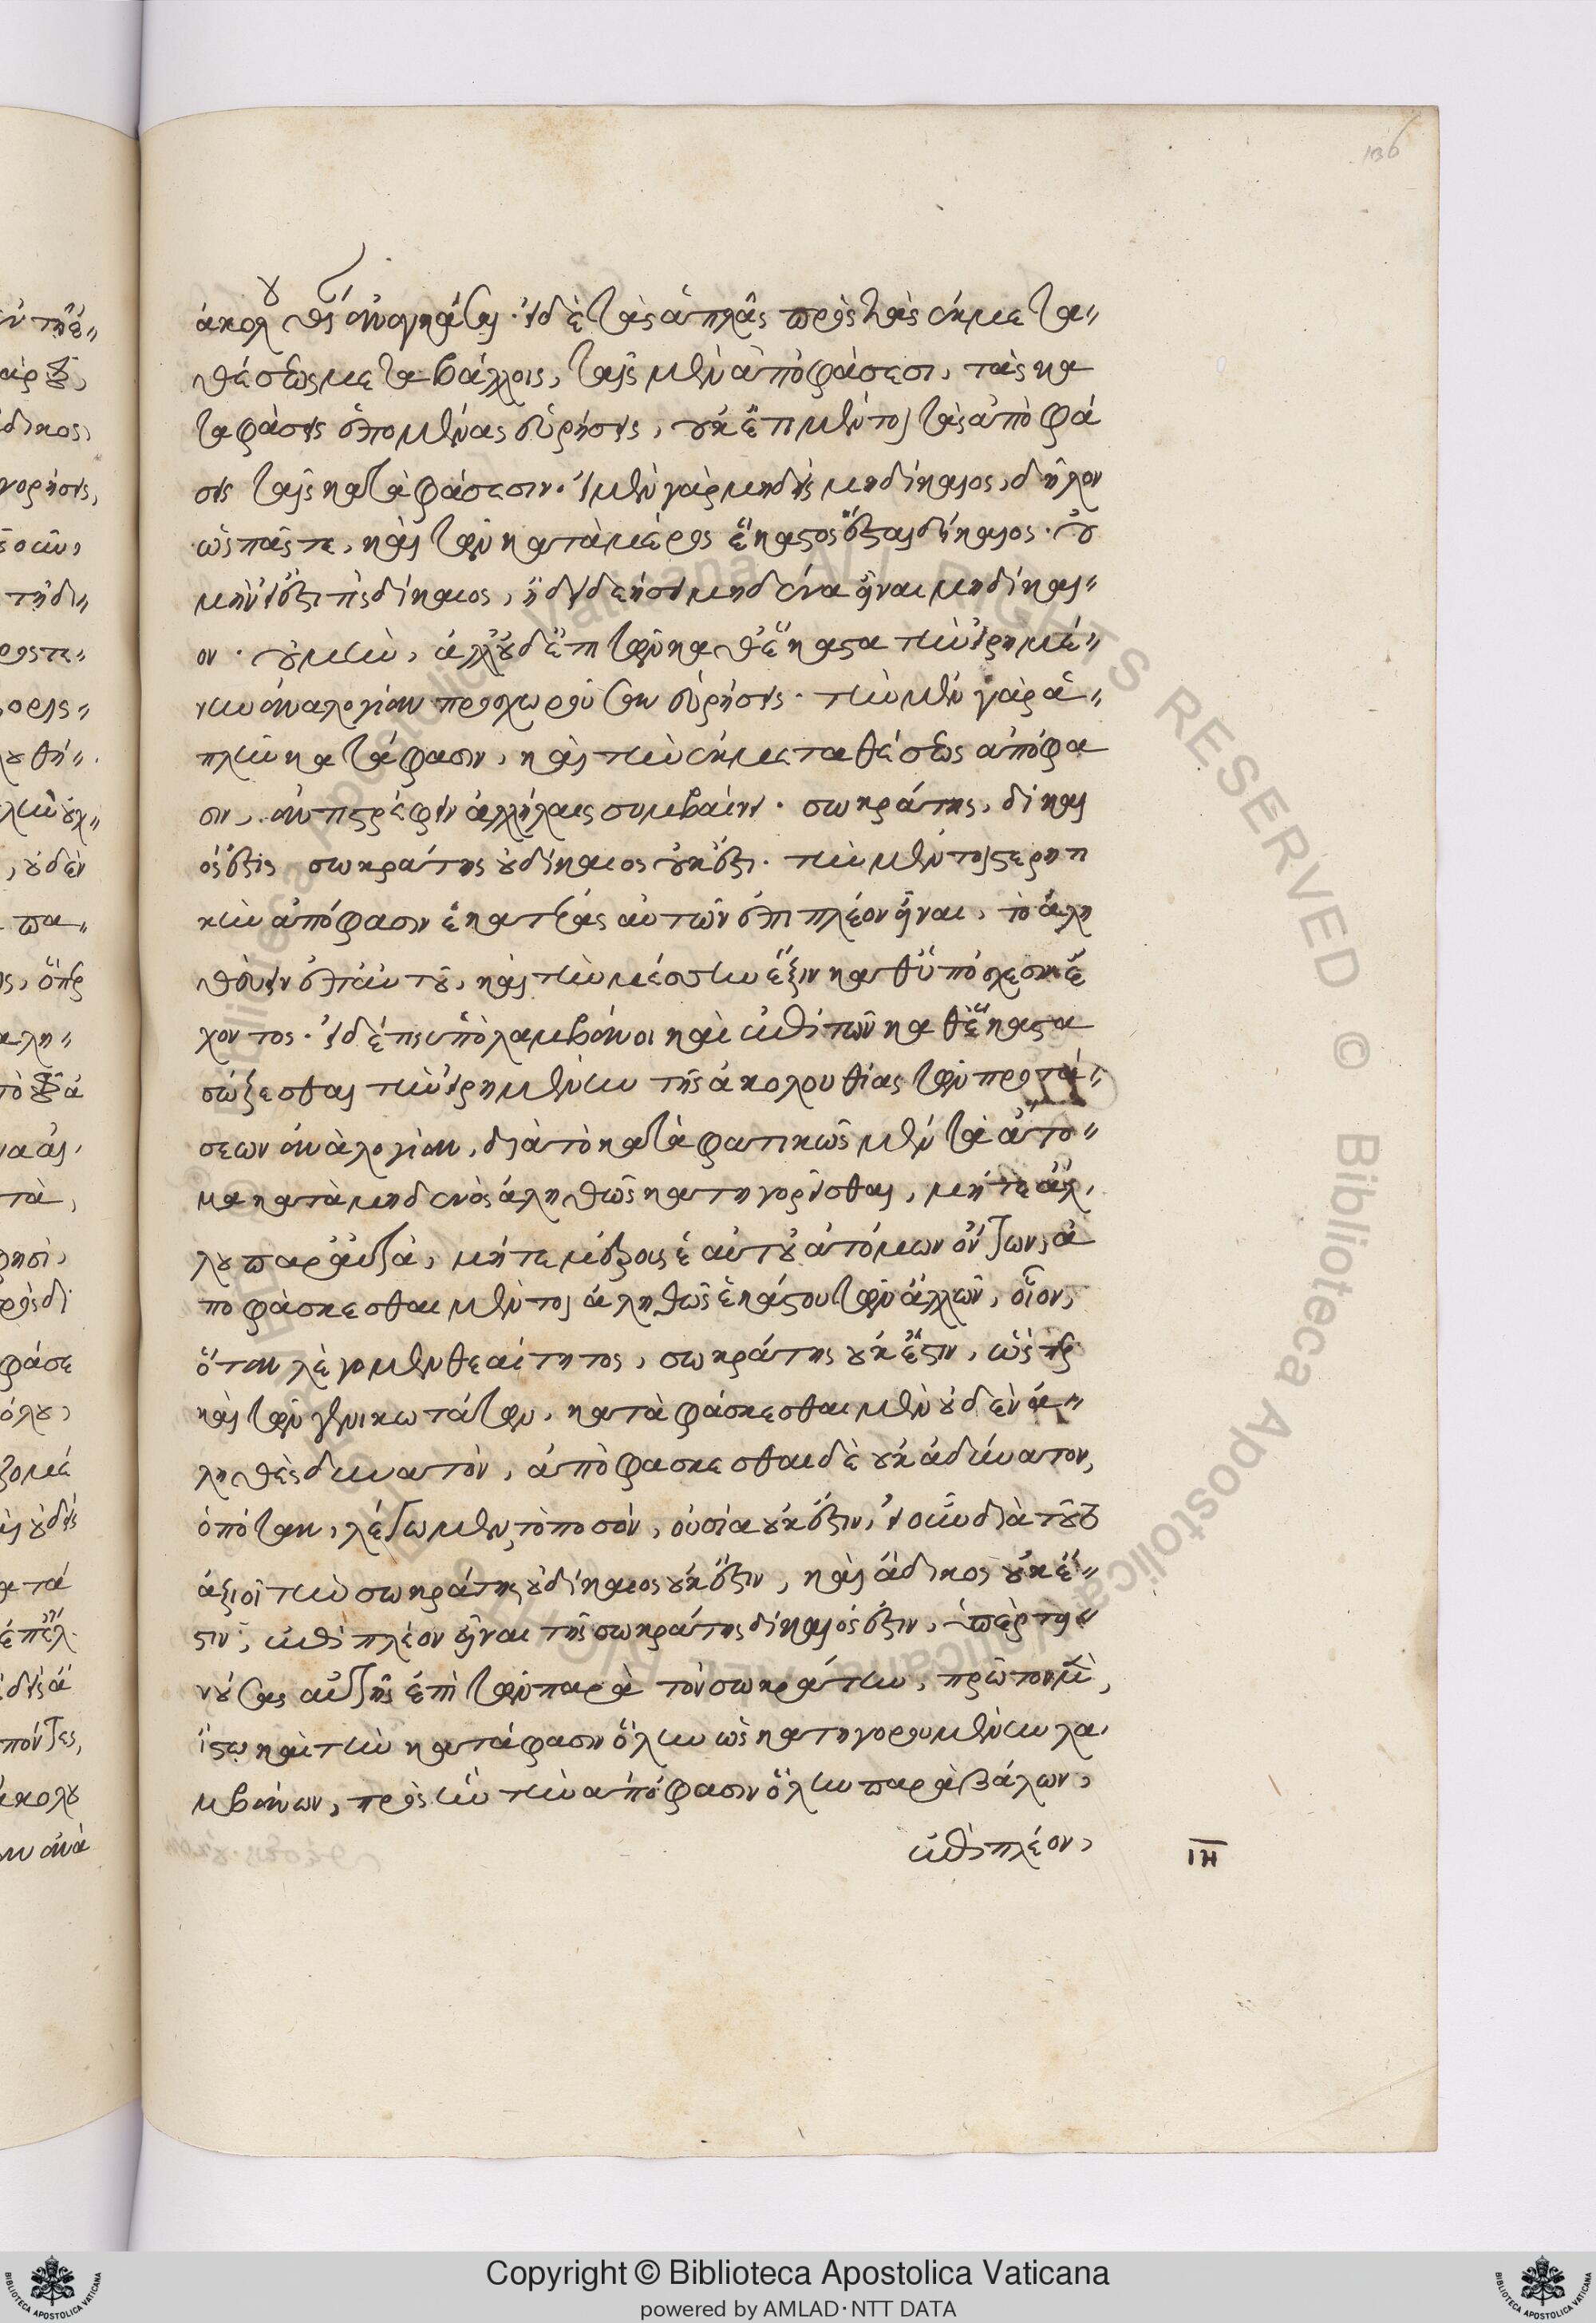 136
ἀκολουθεῖν ἀναγκαῖαι· εἰ δὲ τὰς ἁπλᾶς πρὸς τὰς ἐκ μετα〃
θέσεως μεταβάλλοις, ταῖς μὲν ἀποφάσεσι, τὰς κα
ταφάσεις ἑπομένας εὑρήσεις, οὐκ ἔτι μέντοι τὰς ἀποφά
σεις ταῖς καταφάσεσιν· εἰ μὲν γὰρ μηδεὶς μὴ δίκαιος, δῆλον
ὡς πᾶς τε, καὶ τῶν κατὰ μέρος ἕκαστος ἔσται δίκαιος· οὐ
μὴν εἰ ἔστι τὶς δίκαιος, ἤδη δεήσει μηδένα εἶναι μὴ δίκαι〃
ον· οὐ μὴν, ἀλλ' οὐδ' ἐπὶ τῶν καθ' ἕκαστα τὴν εἰρημέ〃
νην ἀναλογίαν προχωροῦσαν εὑρήσεις· τὴν μὲν γὰρ ἁ〃
πλῆν κατάφασιν, καὶ τὴν ἐκ μεταθέσεως ἀπόφα
σιν, ἀντιστρέφειν ἀλλήλαις συμβαίνει· σωκράτης, δίκαι
ός ἐστι, σωκράτης οὐ δίκαιος οὐκ ἔστι· τὴν μέντοι στερητι
κὴν ἀπόφασιν ἑκατέρας αὐτῶν ἐπιπλέον εἶναι, τὸ ἀλη
θεύειν ἐπ' αὐτοῦ, καὶ τὴν μέσην ἕξιν καθ' ὑπόθεσιν ἔ
χοντος· εἰ δέ τις ὑπολαμβάνοι καὶ ἐπὶ τῶν καθ' ἕκαστα
σώζεσθαι τὴν εἰρημένην τῆς ἀκολουθίας τῶν προτά〃
σεων ἀναλογίαν, διὰ τὸ καταφατικῶς μὲν τὰ ἄτο〃
μα κατὰ μηδενὸς ἀληθῶς κατηγορεῖσθαι, μήτε ἄλ
λου παρ' αὐτὰ, μήτε μέρους ἑαυτοῦ ἀτόμων ὄντων, ἀ
ποφάσκεσθαι μέντοι ἀληθῶς ἑκάστου τῶν ἄλλων, οἷον,
ὅταν λέγομεν θεαίτητος, σωκράτης οὐκ ἔστιν, ὥσπερ
καὶ τῶν γενικωτάτων, καταφάσκεσθαι μὲν οὐδὲν ἀ〃
ληθὲς δυνατὸν, ἀποφασκεσθαι δὲ οὐκ ἀδύνατον,
ὁπόταν, λέγωμεν τὸ ποσόν, οὐσία οὐκ ἔστιν, εἰ οὖν διὰ τοῦτο
ἀξιοῖ τὴν σωκράτης οὐ δίκαιος οὐκ ἔστιν, καὶ ἄδικος οὐκ ἔ〃
στιν, ἐπὶ πλέον εἶναι τῆς σωκράτης δίκαιός ἐστιν, ὑπερτει〃
νούσας αὐτῆς ἐπὶ τῶν παρὰ τὸν σωκράτην, πρῶτον μὲν,
ἴστω καὶ τὴν κατάφασιν ὅλην ὡς κατηγορουμένην λα
μβάνων, πρὸς ἣν τὴν ἀπόφασιν ὅλην παραβάλων,
ἐπὶ πλέον,
ιη
Copyright © Biblioteca Apostolica Vaticana
powered by AMLAD·NTT DATA